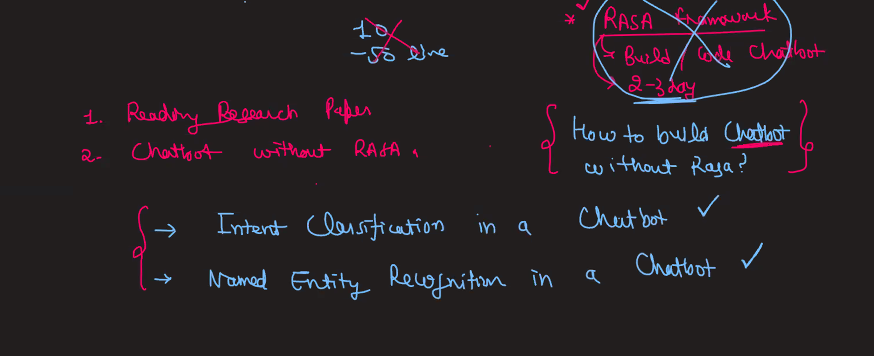 10
-50 line
* ✓ RASA framework
↳ Build / Code Chatbot
→ 2-3 day
1. Reading Research Paper
2- Chatbot without RASA.
{ How to build Chatbot
without Rasa? }
→ Intent Classification in a Chatbot ✓
→ Named Entity Recognition in a Chatbot ✓